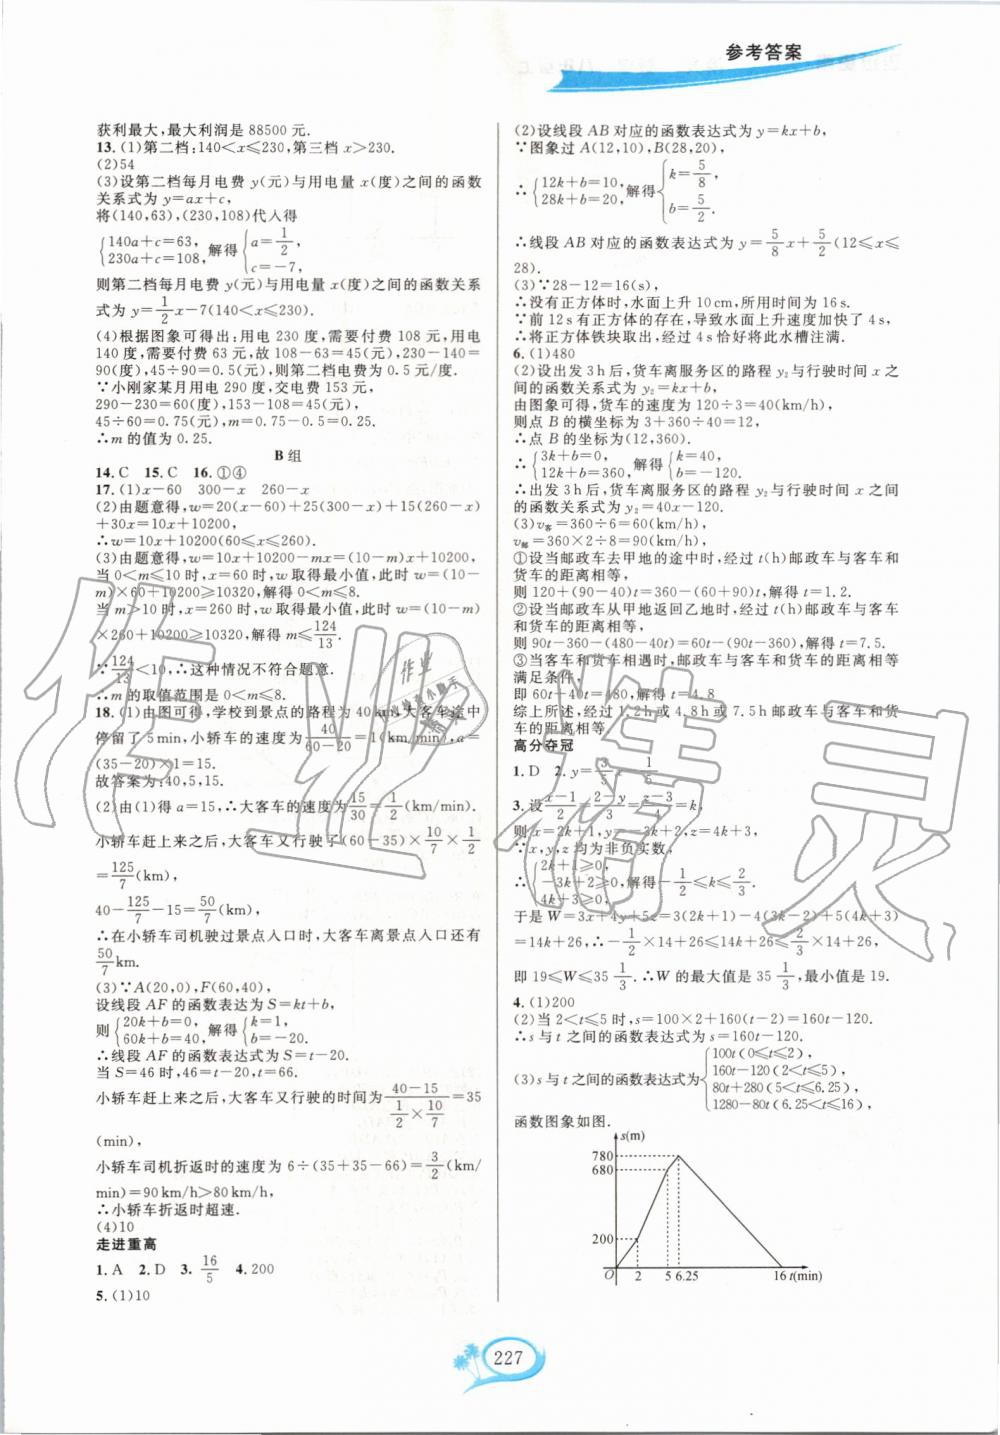 参考答案
获利最大,最大利润是 88500 元.
13. (1)第二档:140<x≤230,第三档 x>230.
(2)54
(3)设第二档每月电费 y(元)与用电量 x(度)之间的函数
关系式为 y=ax+c,
将(140,63),(230,108)代入得
{140a+c=63, 230a+c=108, 解得{a=1/2, c=-7,
则第二档每月电费 y(元)与用电量 x(度)之间的函数关系
式为 y=1/2x-7(140<x≤230).
(4)根据图象可得出:用电 230 度,需要付费 108 元,用电
140 度,需要付费 63 元,故 108-63=45(元),230-140=
90(度),45÷90=0.5(元),则第二档电费为 0.5 元/度.
∵小刚家某月用电 290 度,交电费 153 元,
290-230=60(度),153-108=45(元),
45÷60=0.75(元),m=0.75-0.5=0.25.
∴m 的值为 0.25.
B 组
14. C 15. C 16. ①④
17. (1)x-60 300-x 260-x
(2)由题意得,w=20(x-60)+25(300-x)+15(260-x)
+30x=10x+10200,
∴w=10x+10200(60≤x≤260).
(3)由题意得,w=10x+10200-mx=(10-m)x+10200,
当 0<m≤10 时,x=60 时,w 取得最小值,此时 w=(10-
m)×60+10200≥10320,解得 0<m≤8.
当 m>10 时,x=260 时,w 取得最小值,此时 w=(10-m)
×260+10200≥10320,解得 m≤124/13.
∵124/13<10,∴这种情况不符合题意.
∴m 的取值范围是 0<m≤8.
18. (1)由图可得,学校到景点的路程为 40 km,大客车途中
停留了 5 min,小轿车的速度为40/(60-20)=1(km/min),a=
(35-20)×1=15.
故答案为:40,5,15.
(2)由(1)得 a=15,∴大客车的速度为15/30=1/2(km/min).
小轿车赶上来之后,大客车又行驶了(60-35)×10/7×1/2
=125/7(km),
40-125/7-15=50/7(km),
∴在小轿车司机驶过景点入口时,大客车离景点入口还有
50/7km.
(3)∵A(20,0),F(60,40),
设线段 AF 的函数表达式为 S=kt+b,
则{20k+b=0, 60k+b=40, 解得{k=1, b=-20.
∴线段 AF 的函数表达式为 S=t-20.
当 S=46 时,46=t-20,t=66.
小轿车赶上来之后,大客车又行驶的时间为(40-15)/(1/2×10/7)=35
(min),
小轿车司机折返时的速度为 6÷(35+35-66)=3/2(km/
min)=90 km/h>80 km/h,
∴小轿车折返时超速.
(4)10
走进重高
1. A 2. D 3. 16/5 4. 200
5. (1)10
(2)设线段 AB 对应的函数表达式为 y=kx+b,
∵图象过 A(12,10),B(28,20),
∴{12k+b=10, 28k+b=20, 解得{k=5/8, b=5/2.
∴线段 AB 对应的函数表达式为 y=5/8x+5/2(12≤x≤
28).
(3)∵28-12=16(s),
∴没有正方体时,水面上升 10 cm,所用时间为 16 s.
∵前 12 s 有正方体的存在,导致水面上升速度加快了 4 s,
∴将正方体铁块取出,经过 4 s 恰好将此水槽注满.
6. (1)480
(2)设出发 3 h 后,货车离服务区的路程 y₂与行驶时间 x 之
间的函数关系式为 y₂=kx+b,
由图象可得,货车的速度为 120÷3=40(km/h),
则点 B 的横坐标为 3+360÷40=12,
∴点 B 的坐标为(12,360).
∴{3k+b=0, 12k+b=360, 解得{k=40, b=-120.
∴出发 3 h 后,货车离服务区的路程 y₂与行驶时间 x 之间
的函数关系式为 y₂=40x-120.
(3)v客=360÷6=60(km/h),
v邮=360×2÷8=90(km/h),
①设当邮政车去甲地的途中时,经过 t(h)邮政车与客车和
货车的距离相等,
则 120+(90-40)t=360-(60+90)t,解得 t=1.2.
②设当邮政车从甲地返回乙地时,经过 t(h)邮政车与客车
和货车的距离相等,
则 90t-360-(480-40t)=60t-(90t-360),解得 t=7.5.
③当客车和货车相遇时,邮政车与客车和货车的距离相等
满足条件,
即 60t+40t=480,解得 t=4.8
综上所述,经过 1.2h 或 4.8 h 或 7.5 h 邮政车与客车和货
车的距离相等.
高分夺冠
1. D 2. y=3/5x-1/5
3. 设(x-1)/2=(2-y)/3=(z-3)/4=k,
则 x=2k+1,y=-3k+2,z=4k+3,
∵x,y,z 均为非负实数,
∴{2k+1≥0, -3k+2≥0, 4k+3≥0, 解得-1/2≤k≤2/3.
于是 W=3x+4y+5z=3(2k+1)-4(3k-2)+5(4k+3)
=14k+26,∴-1/2×14+26≤14k+26≤2/3×14+26,
即 19≤W≤35 1/3.∴W 的最大值是 35 1/3,最小值是 19.
4. (1)200
(2)当 2<t≤5 时,s=100×2+160(t-2)=160t-120.
∴s 与 t 之间的函数表达式为 s=160t-120.
(3)s 与 t 之间的函数表达式为{100t(0≤t≤2), 160t-120(2<t≤5), 80t+280(5<t≤6.25), 1280-80t(6.25<t≤16),
函数图象如图.
s(m)
780
680
200
O 2 5 6.25 16 t(min)
227
作业精灵